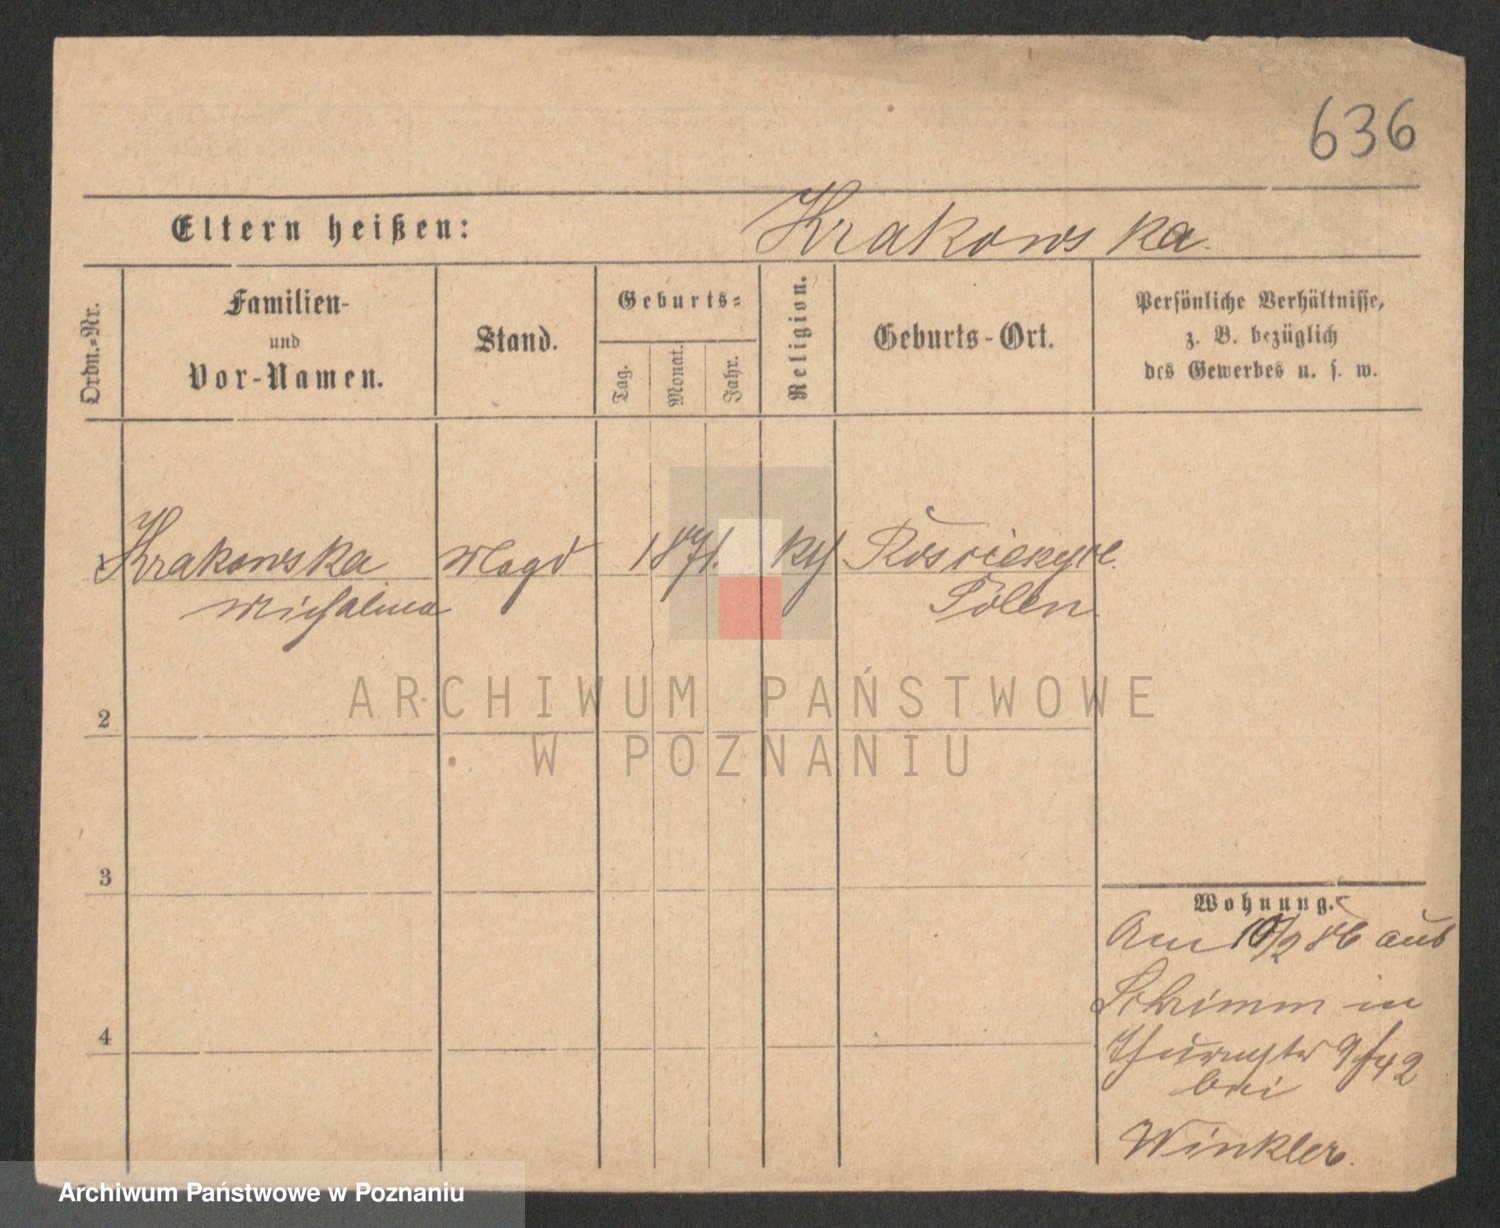 636
Eltern heißen: Krakowska.
Ordn.-Nr.
Familien-
und
Vor-Namen.
Stand.
Geburts-
Tag.
Monat.
Jahr.
Religion.
Geburts-Ort.
Persönliche Verhältnisse,
z. B. bezüglich
des Gewerbes u. s. w.
Krakowska Magd 1871. kth
Michalina Polen.
ARCHIWUM PAŃSTWOWE
W POZNANIU
2
3
4
Wohnung.
Am 10/2 86 aus
Schrimm in
Thurmstr 9/42
bei
Winkler.
Archiwum Państwowe w Poznaniu